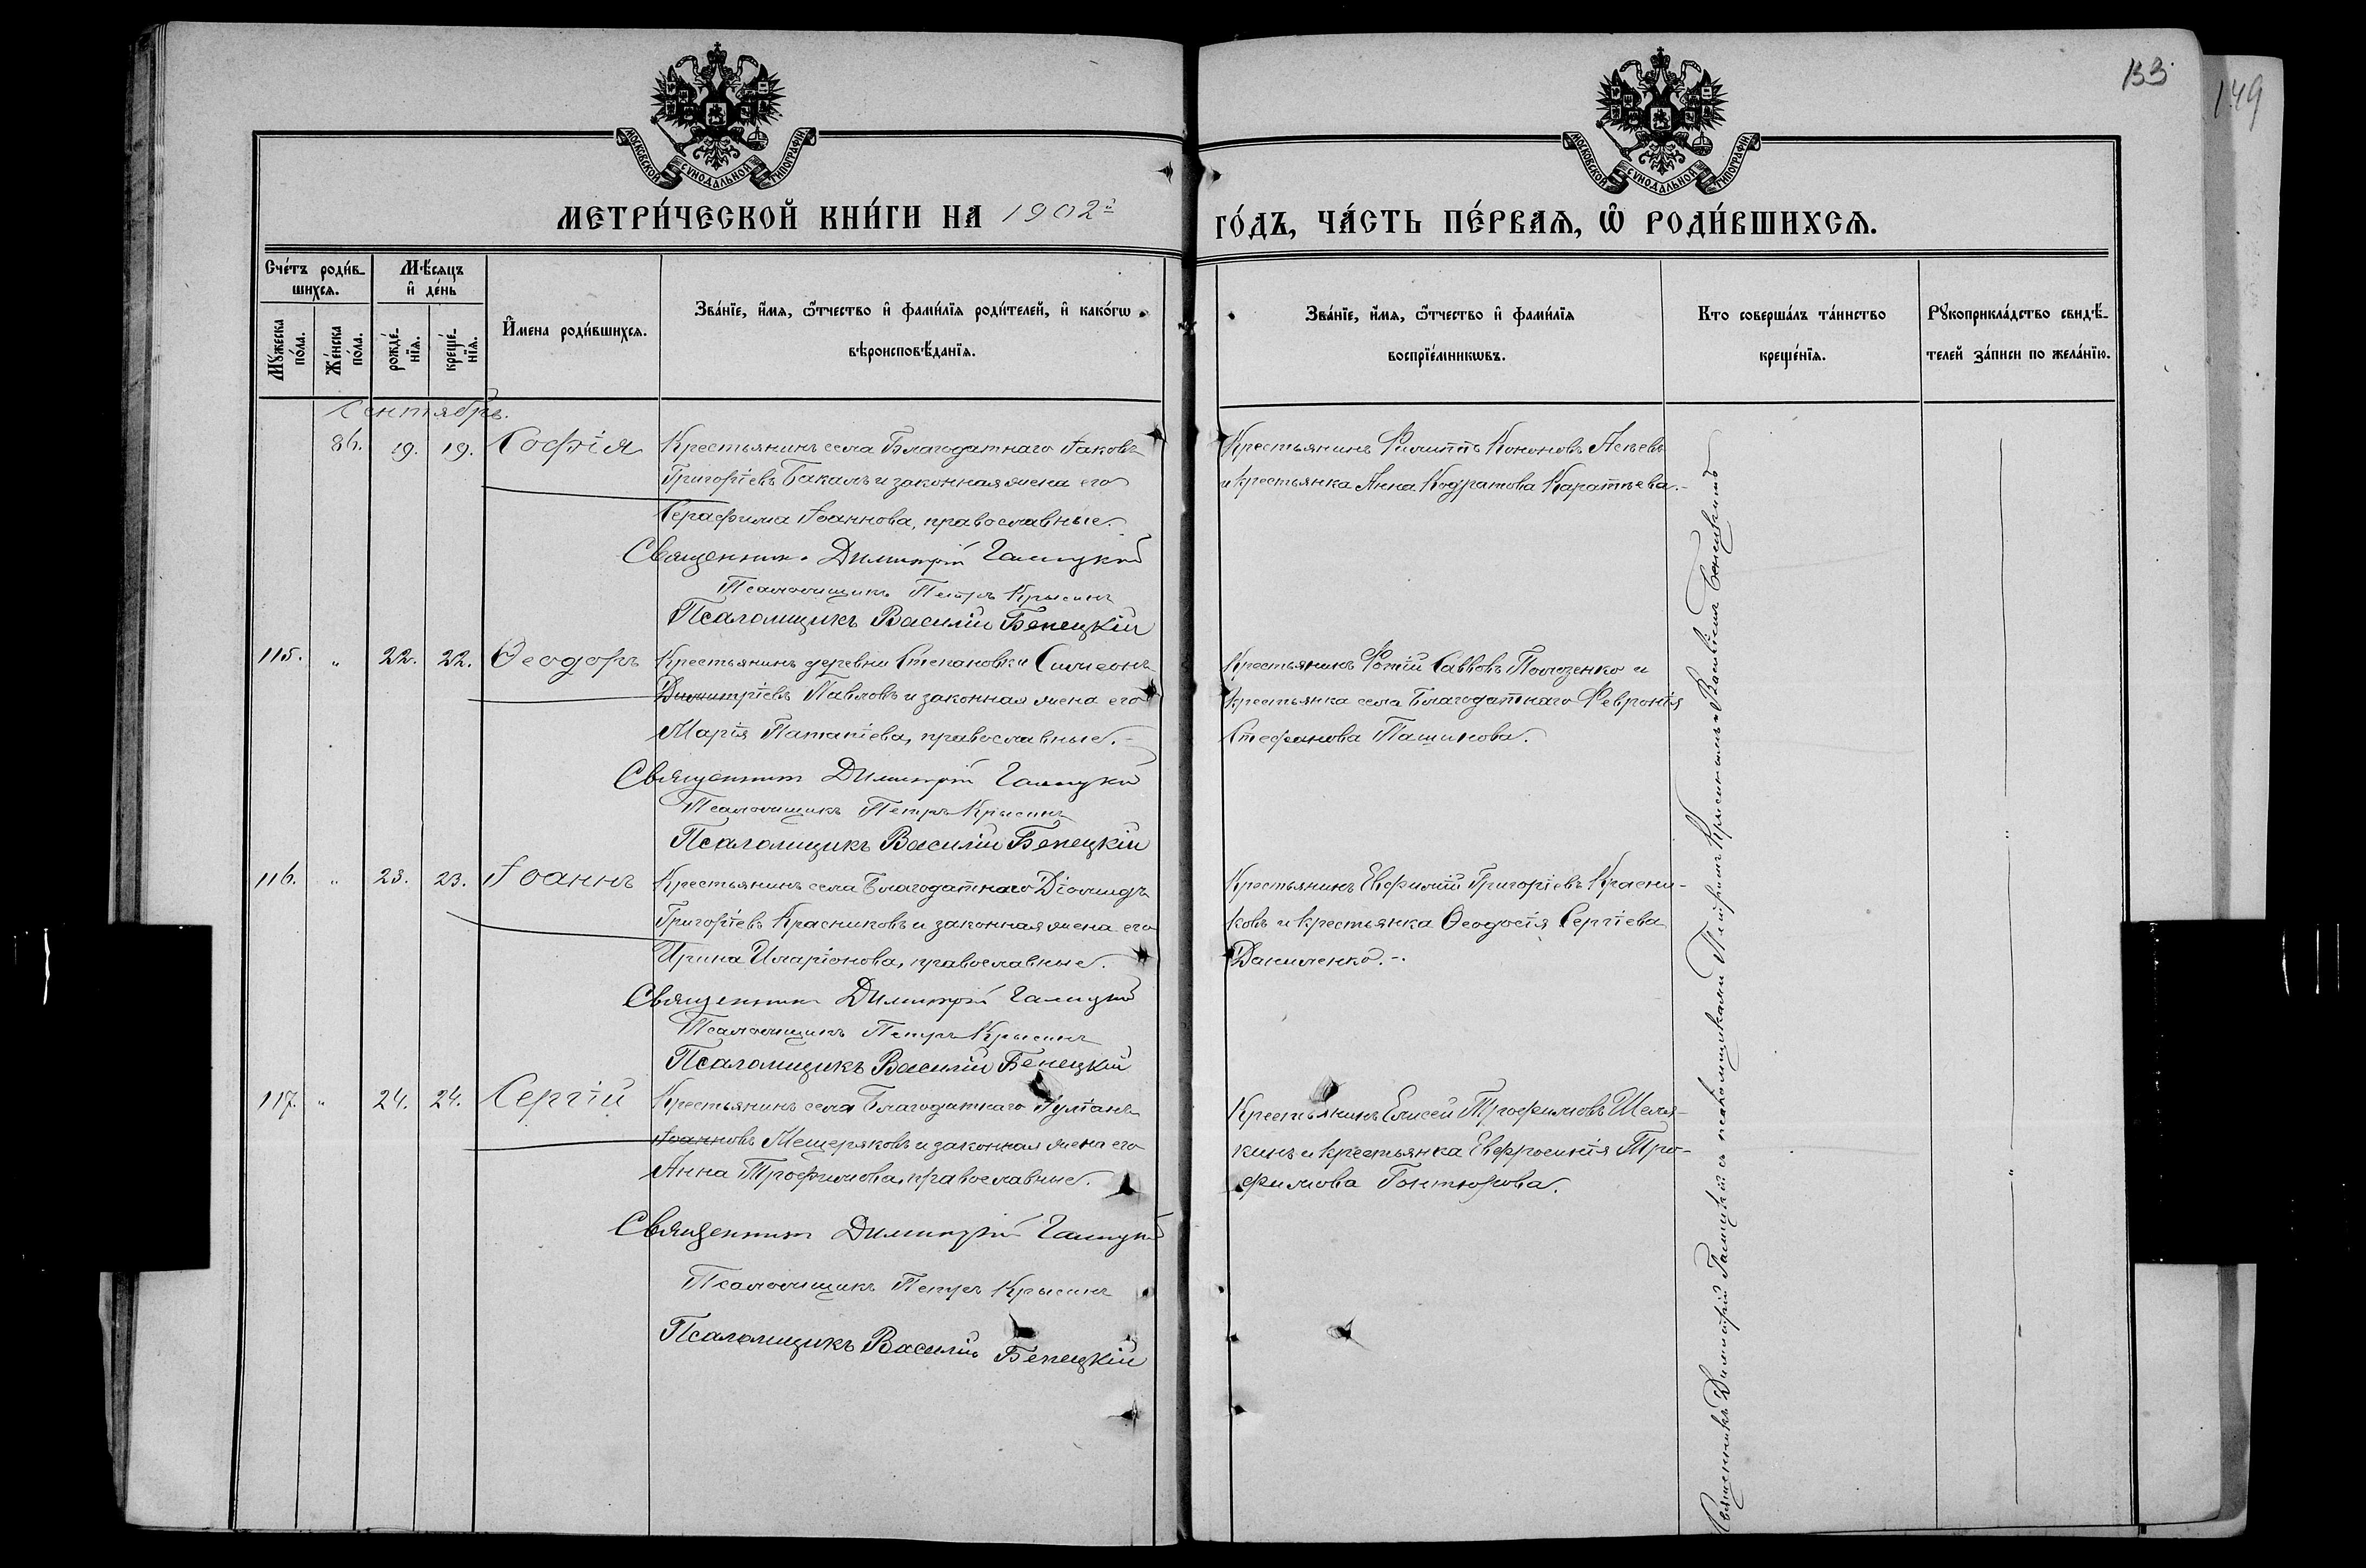 133
149
МОСКОВСКОЙ СѴНОДАЛЬНОЙ ТИПОГРАФІИ
МОСКОВСКОЙ СѴНОДАЛЬНОЙ ТИПОГРАФІИ
МЕТРИ́ЧЕСКОЙ КНИ́ГИ НА 1902й
ГО́ДЪ, ЧА́СТЬ ПЕ́РВАѦ, Ѡ҆ РОДИ́ВШИХСѦ.
Сче́тъ роди́в-
шихсѧ.
Мѣ́сѧцъ
и҆ де́нь
Мꙋ́жеска
по́ла.
Же́нска
по́ла.
рожде́-
нїѧ.
креще́-
нїѧ.
И҆́мена роди́вшихсѧ.
Зва́нїе, и҆́мѧ, ѻ҆́тчество и҆ фами́лїѧ роди́телей, и҆ како́гѡ
вѣроисповѣ́данїѧ.
Зва́нїе, и҆́мѧ, ѻ҆́тчество и҆ фами́лїѧ
воспрїе́мникѡвъ.
Кто соверша́лъ та́инство
креще́нїѧ.
Рꙋкоприкла́дство свидѣ́-
телей за́писи по жела́нїю.
Сентябрь.
86. 19. 19. Софія Крестьянинъ села Благодатнаго Іаковъ
Григоріевъ Бакалъ и законная жена его
Серафима Іоаннова, православные.
Священникъ Димитрій Галицкій
Псаломщикъ Петръ Крысинъ
Псаломщикъ Василій Бенецкій
Крестьянинъ Филиппъ Кононовъ
и крестьянка Анна Кодратова Каратѣева.-
115. " 22. 22. Ѳеодоръ Крестьянинъ деревни Степановки Симеонъ
Димитріевъ Павловъ и законная жена его
Марія Патапіева, православные.-
Священникъ Димитрій Галицкій
Псаломщикъ Петръ Крысинъ
Псаломщикъ Василій Бенецкій
Крестьянинъ Фотій Саввовъ и
крестьянка села Благодатнаго Февронія
Стефанова Пашикова.
116. " 23. 23. Іоаннъ Крестьянинъ села Благодатнаго Діомидъ
Григоріевъ Красниковъ и законная жена его
Ирина Иларіонова, православные.
Священникъ Димитрій Галицкій
Псаломщикъ Петръ Крысинъ
Псаломщикъ Василій Бенецкій
Крестьянинъ Евфимій Григоріевъ Красни-
ковъ и крестьянка Ѳеодосія Сергіева
Даниленко.-
117. " 24. 24. Сергій Крестьянинъ села Благодатнаго Іуліанъ
Іоанновъ Мещеряковъ и законная жена его
Анна Трофимова, православные.
Священникъ Димитрій Галицкій
Псаломщикъ Петръ Крысинъ
Псаломщикъ Василій Бенецкій
Крестьянинъ Елисей Трофимовъ Шеля-
кинъ и крестьянка Евфросинія Тро-
фимова Гонтюрова.
Священникъ Димитрій Галицкій съ псаломщиками Петромъ Крысинымъ и Василіемъ Бенецкимъ